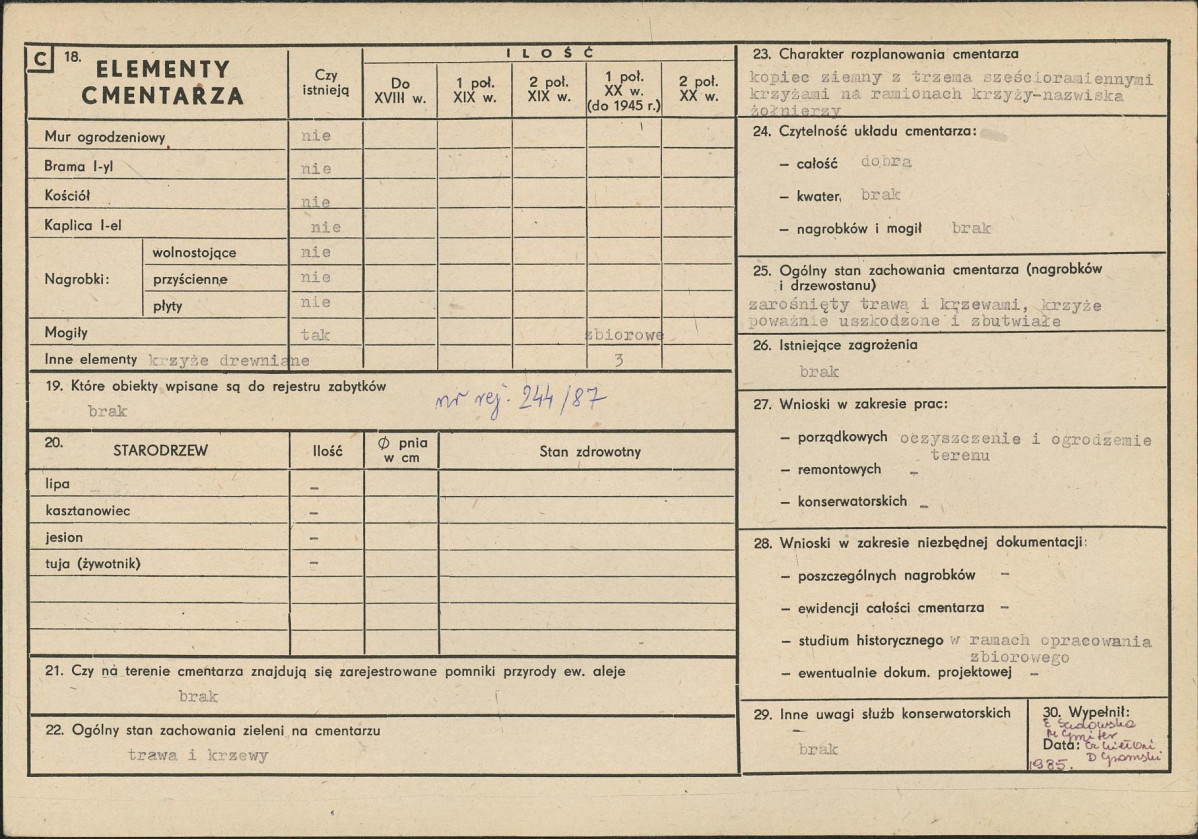 C 18. ELEMENTY CMENTARZA
Czy istnieją
ILOŚĆ
Do XVIII w.
1 poł. XIX w.
2 poł. XIX w.
1 poł. XX w. (do 1945 r.)
2 poł. XX w.
Mur ogrodzeniowy nie
Brama I-yl nie
Kościół nie
Kaplica I-el nie
Nagrobki:
wolnostojące nie
przyścienne nie
płyty nie
Mogiły tak zbiorowe
Inne elementy krzyże drewniane 3
19. Które obiekty wpisane są do rejestru zabytków
brak nr rej. 244/87
20. STARODRZEW Ilość Ø pnia w cm Stan zdrowotny
lipa –
kasztanowiec –
jesion –
tuja (żywotnik) –
21. Czy na terenie cmentarza znajdują się zarejestrowane pomniki przyrody ew. aleje
brak
22. Ogólny stan zachowania zieleni na cmentarzu
trawa i krzewy
23. Charakter rozplanowania cmentarza
kopiec ziemny z trzema sześcioramiennymi
krzyżami na ramionach krzyży-nazwiska
żołnierzy
24. Czytelność układu cmentarza:
– całość dobra
– kwater, brak
– nagrobków i mogił brak
25. Ogólny stan zachowania cmentarza (nagrobków
i drzewostanu)
zarośnięty trawą i krzewami, krzyże
poważnie uszkodzone i zbutwiałe
26. Istniejące zagrożenia
brak
27. Wnioski w zakresie prac:
– porządkowych oczyszczenie i ogrodzemie
terenu
– remontowych –
– konserwatorskich –
28. Wnioski w zakresie niezbędnej dokumentacji:
– poszczególnych nagrobków –
– ewidencji całości cmentarza –
– studium historycznego w ramach opracowania
zbiorowego
– ewentualnie dokum. projektowej –
29. Inne uwagi służb konserwatorskich
brak
30. Wypełnił:
Data:
1985.